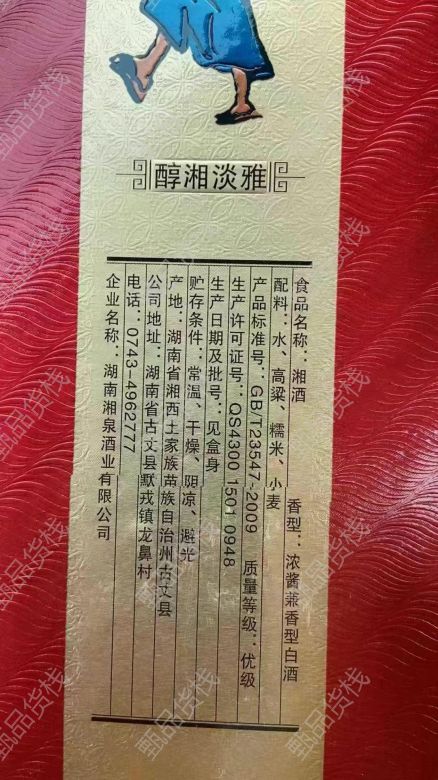 醇湘淡雅
食品名称：湘酒
香型：浓酱兼香型白酒
配料：水、高粱、糯米、小麦
产品标准号：GB/T23547-2009
质量等级：优级
生产许可证号：QS4300 1501 0948
生产日期及批号：见盒身
贮存条件：常温、干燥、阴凉、避光
产地：湖南省湘西土家族苗族自治州古丈县
公司地址：湖南省古丈县默戎镇龙鼻村
电话：0743-4962777
企业名称：湖南湘泉酒业有限公司
甄品货栈